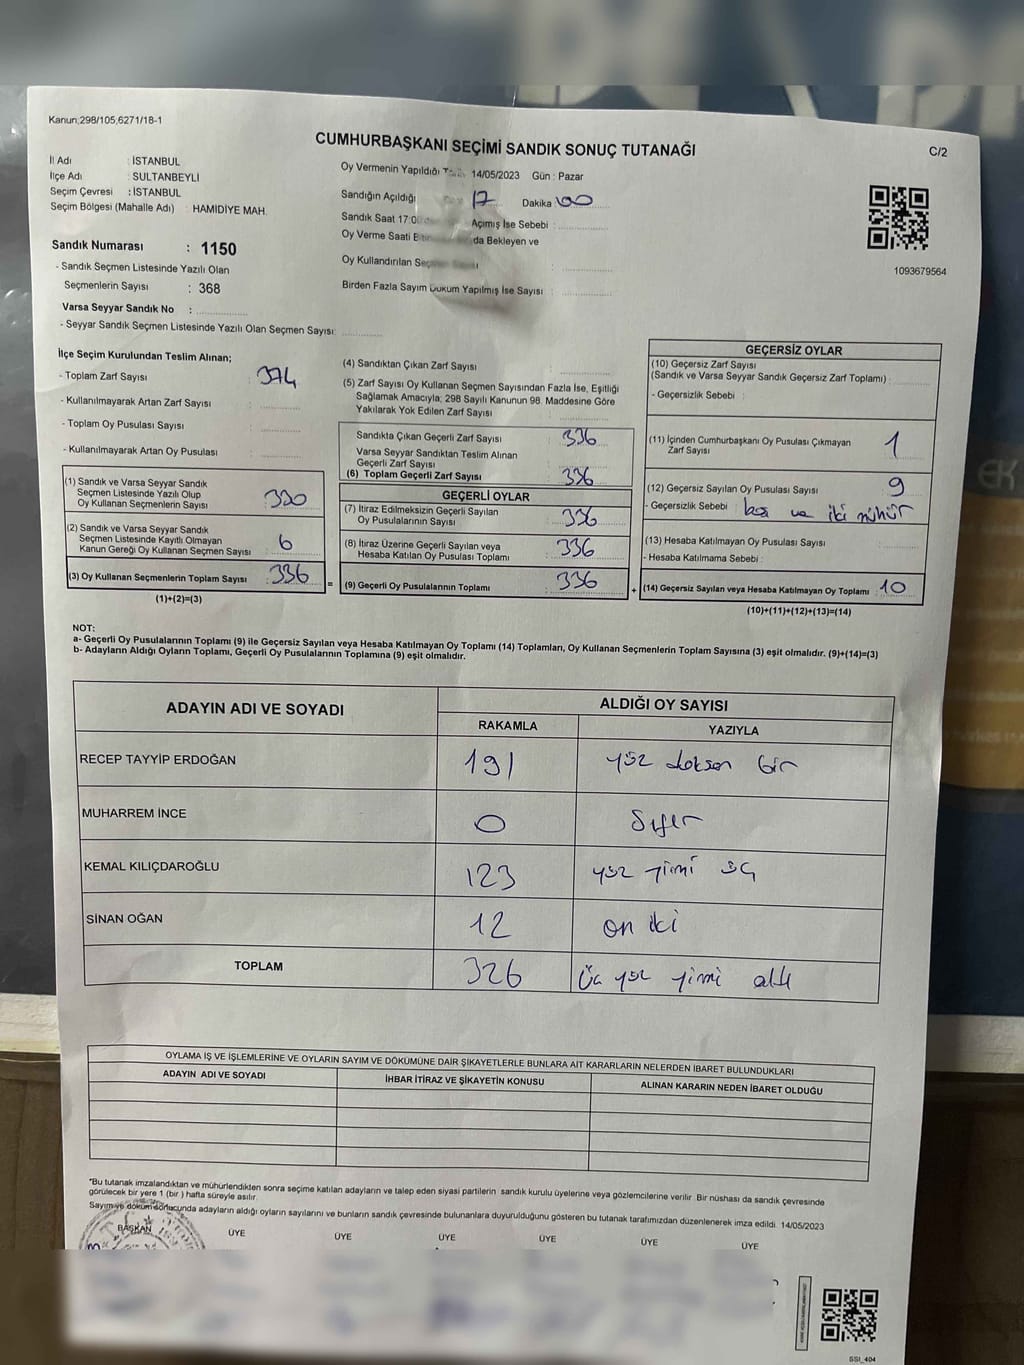 Kanun;298/105,6271/18-1
CUMHURBAŞKANI SEÇİMİ SANDIK SONUÇ TUTANAĞI
C/2
İl Adı : İSTANBUL
İlçe Adı : SULTANBEYLİ
Seçim Çevresi : İSTANBUL
Seçim Bölgesi (Mahalle Adı) : HAMİDİYE MAH.
Oy Vermenin Yapıldığı 14/05/2023 Gün : Pazar
Sandığın Açıldığı 17 Dakika 00
Sandık Saat 17:00 Açımış İse Sebebi :
Oy Verme Saati da Bekleyen ve
Oy Kullandırılan
Birden Fazla Sayım Döküm Yapılmış İse Sayısı :
1093679564
Sandık Numarası : 1150
- Sandık Seçmen Listesinde Yazılı Olan
Seçmenlerin Sayısı : 368
Varsa Seyyar Sandık No :
- Seyyar Sandık Seçmen Listesinde Yazılı Olan Seçmen Sayısı:
İlçe Seçim Kurulundan Teslim Alınan;
- Toplam Zarf Sayısı : 374
- Kullanılmayarak Artan Zarf Sayısı :
- Toplam Oy Pusulası Sayısı :
- Kullanılmayarak Artan Oy Pusulası :
(1) Sandık ve Varsa Seyyar Sandık
Seçmen Listesinde Yazılı Olup
Oy Kullanan Seçmenlerin Sayısı : 330
(2) Sandık ve Varsa Seyyar Sandık
Seçmen Listesinde Kayıtlı Olmayan
Kanun Gereği Oy Kullanan Seçmen Sayısı : 6
(3) Oy Kullanan Seçmenlerin Toplam Sayısı : 336
(1)+(2)=(3)
=
(4) Sandıktan Çıkan Zarf Sayısı :
(5) Zarf Sayısı Oy Kullanan Seçmen Sayısından Fazla İse, Eşitliği
Sağlamak Amacıyla; 298 Sayılı Kanunun 98. Maddesine Göre
Yakılarak Yok Edilen Zarf Sayısı :
Sandıkta Çıkan Geçerli Zarf Sayısı : 336
Varsa Seyyar Sandıktan Teslim Alınan
Geçerli Zarf Sayısı :
(6) Toplam Geçerli Zarf Sayısı : 336
GEÇERLİ OYLAR
(7) İtiraz Edilmeksizin Geçerli Sayılan
Oy Pusulalarının Sayısı : 336
(8) İtiraz Üzerine Geçerli Sayılan veya
Hesaba Katılan Oy Pusulası Toplamı : 336
(9) Geçerli Oy Pusulalarının Toplamı : 336
+
GEÇERSİZ OYLAR
(10) Geçersiz Zarf Sayısı
(Sandık ve Varsa Seyyar Sandık Geçersiz Zarf Toplamı) :
- Geçersizlik Sebebi :
(11) İçinden Cumhurbaşkanı Oy Pusulası Çıkmayan
Zarf Sayısı : 1
(12) Geçersiz Sayılan Oy Pusulası Sayısı : 9
- Geçersizlik Sebebi : boş ve iki mühür
(13) Hesaba Katılmayan Oy Pusulası Sayısı :
- Hesaba Katılmama Sebebi :
(14) Geçersiz Sayılan veya Hesaba Katılmayan Oy Toplamı : 10
(10)+(11)+(12)+(13)=(14)
NOT:
a- Geçerli Oy Pusulalarının Toplamı (9) ile Geçersiz Sayılan veya Hesaba Katılmayan Oy Toplamı (14) Toplamları, Oy Kullanan Seçmenlerin Toplam Sayısına (3) eşit olmalıdır. (9)+(14)=(3)
b- Adayların Aldığı Oyların Toplamı, Geçerli Oy Pusulalarının Toplamına (9) eşit olmalıdır.
ADAYIN ADI VE SOYADI
ALDIĞI OY SAYISI
RAKAMLA YAZIYLA
RECEP TAYYİP ERDOĞAN 191 yüz doksan bir
MUHARREM İNCE 0 Sıfır
KEMAL KILIÇDAROĞLU 123 yüz yirmi üç
SİNAN OĞAN 12 on iki
TOPLAM 326 Üç yüz yirmi altı
OYLAMA İŞ VE İŞLEMLERİNE VE OYLARIN SAYIM VE DÖKÜMÜNE DAİR ŞİKAYETLERLE BUNLARA AİT KARARLARIN NELERDEN İBARET BULUNDUKLARI
ADAYIN ADI VE SOYADI İHBAR İTİRAZ VE ŞİKAYETİN KONUSU ALINAN KARARIN NEDEN İBARET OLDUĞU
*Bu tutanak imzalandıktan ve mühürlendikten sonra seçime katılan adayların ve talep eden siyasi partilerin sandık kurulu üyelerine veya gözlemcilerine verilir. Bir nüshası da sandık çevresinde
görülecek bir yere 1 (bir ) hafta süreyle asılır.
Sayım ve döküm sonucunda adayların aldığı oyların sayılarını ve bunların sandık çevresinde bulunanlara duyurulduğunu gösteren bu tutanak tarafımızdan düzenlenerek imza edildi. 14/05/2023
BAŞKAN ÜYE ÜYE ÜYE ÜYE ÜYE ÜYE
SSI_404
EK